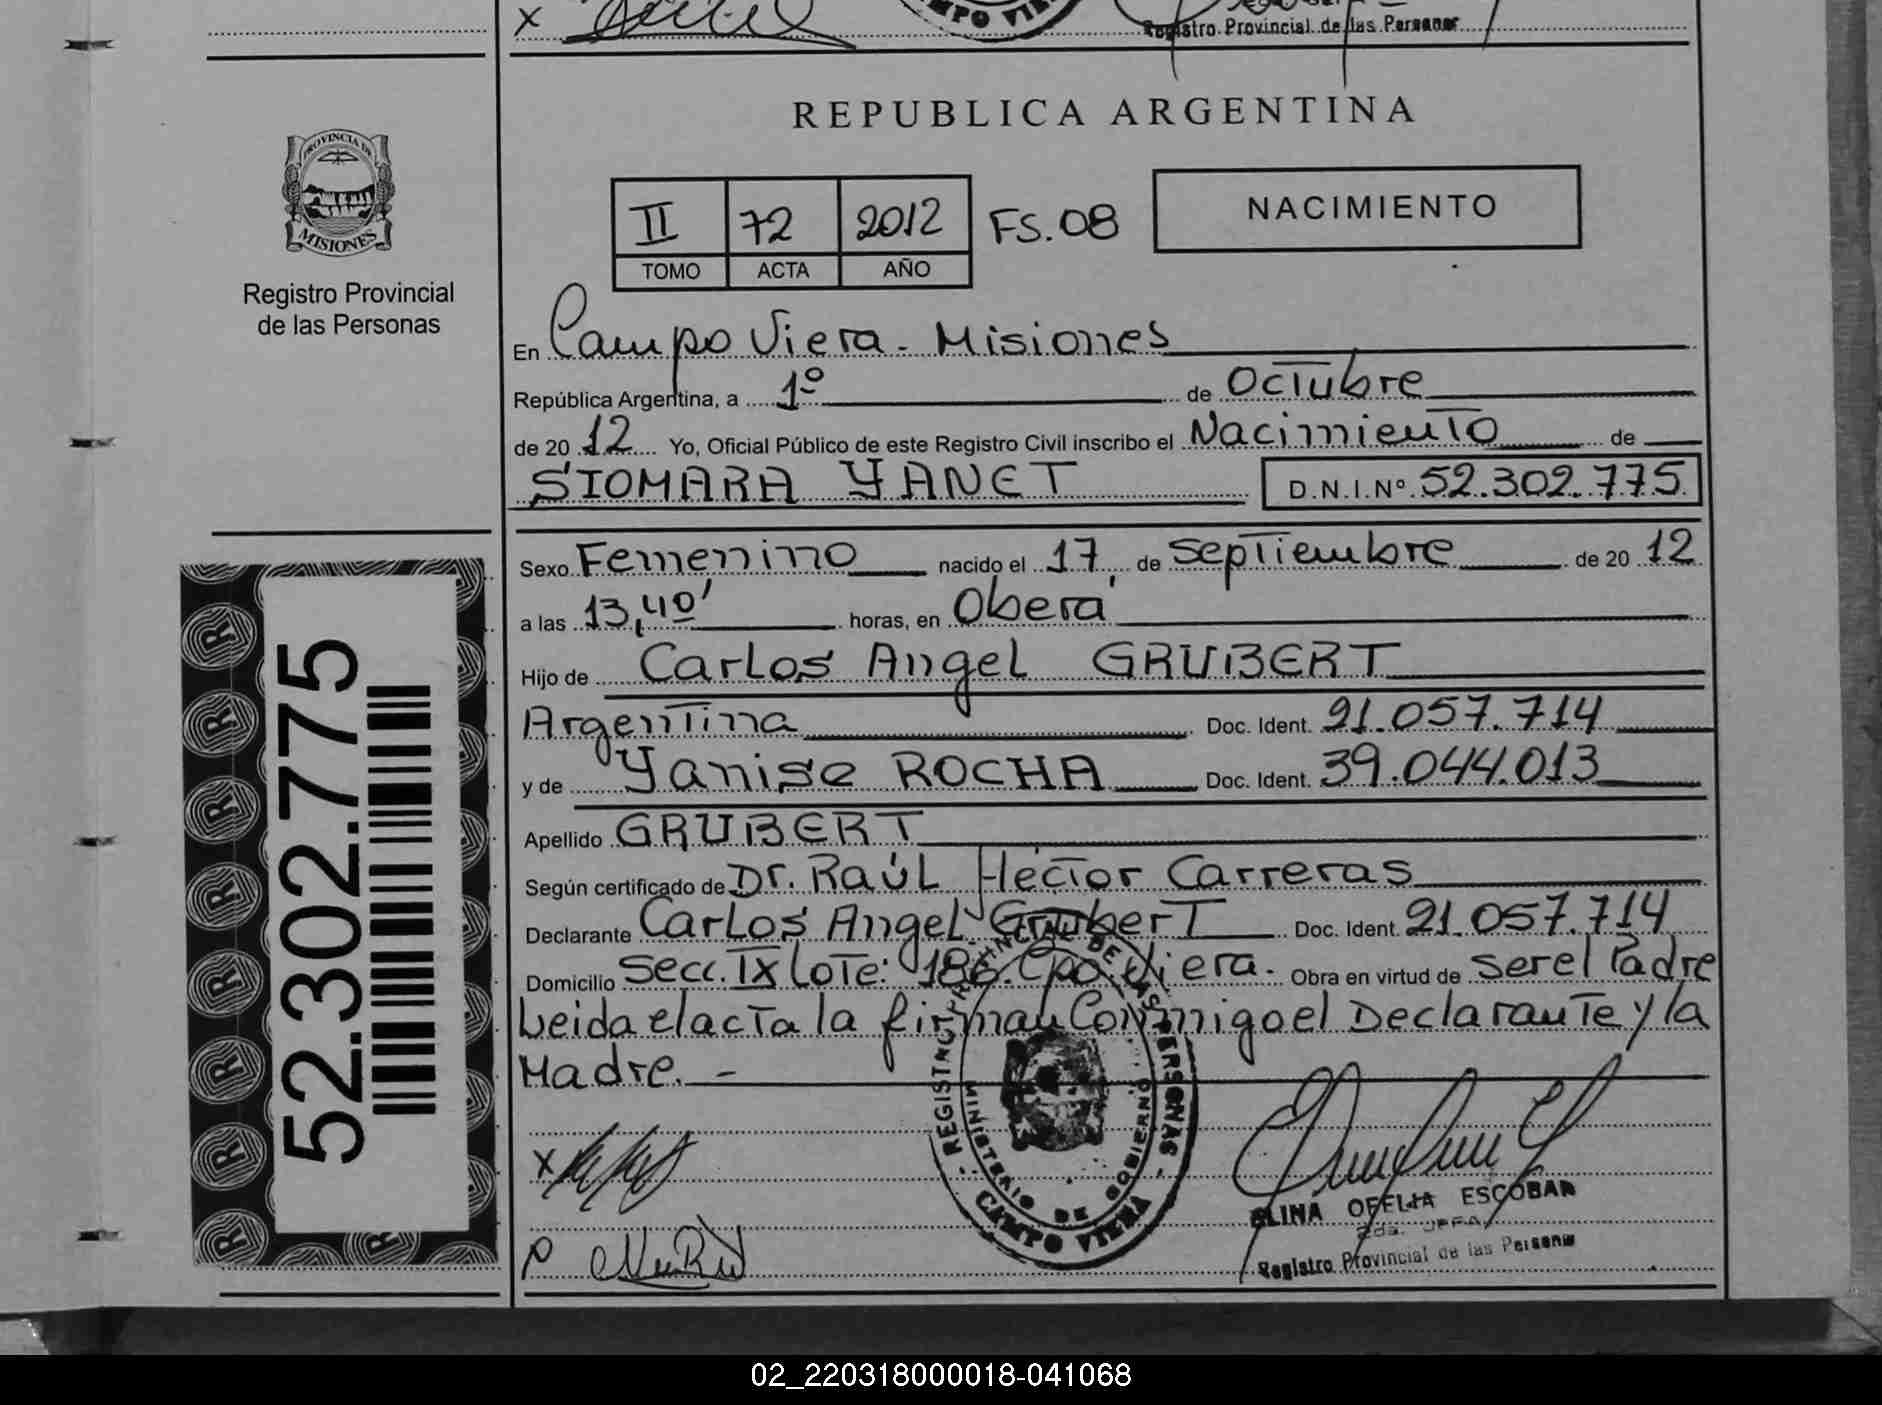 Registro Provincial de las Personas
REPUBLICA ARGENTINA
PROVINCIA DE
MISIONES
Registro Provincial
de las Personas
II 72 2012 FS.08
TOMO ACTA AÑO
NACIMIENTO
En Campo Viera - Misiones
República Argentina, a 1º de Octubre
de 20 12 Yo, Oficial Público de este Registro Civil inscribo el Nacimiento de
SIOMARA YANET D.N.I.Nº 52.302.775
Sexo Femenino nacido el 17 de septiembre de 20 12
a las 13,40' horas, en Oberá
Hijo de Carlos Angel GRUBERT
Argentina Doc. Ident. 21.057.714
y de Yanise ROCHA Doc. Ident. 39.044.013
Apellido GRUBERT
Según certificado de Dr. Raúl Héctor Carreras
Declarante Carlos Angel Grubert Doc. Ident. 21.057.714
Domicilio Secc. IX Lote: 186. Cpo. Viera. Obra en virtud de ser el Padre
Leida el acta la firman Conmigo el Declarante y la
Madre. -
52.302.775
REGISTRO PROVINCIAL DE LAS PERSONAS
MINISTERIO DE GOBIERNO
CAMPO VIERA
ELINA OFELIA ESCOBAR
Registro Provincial de las Personas
02_220318000018-041068